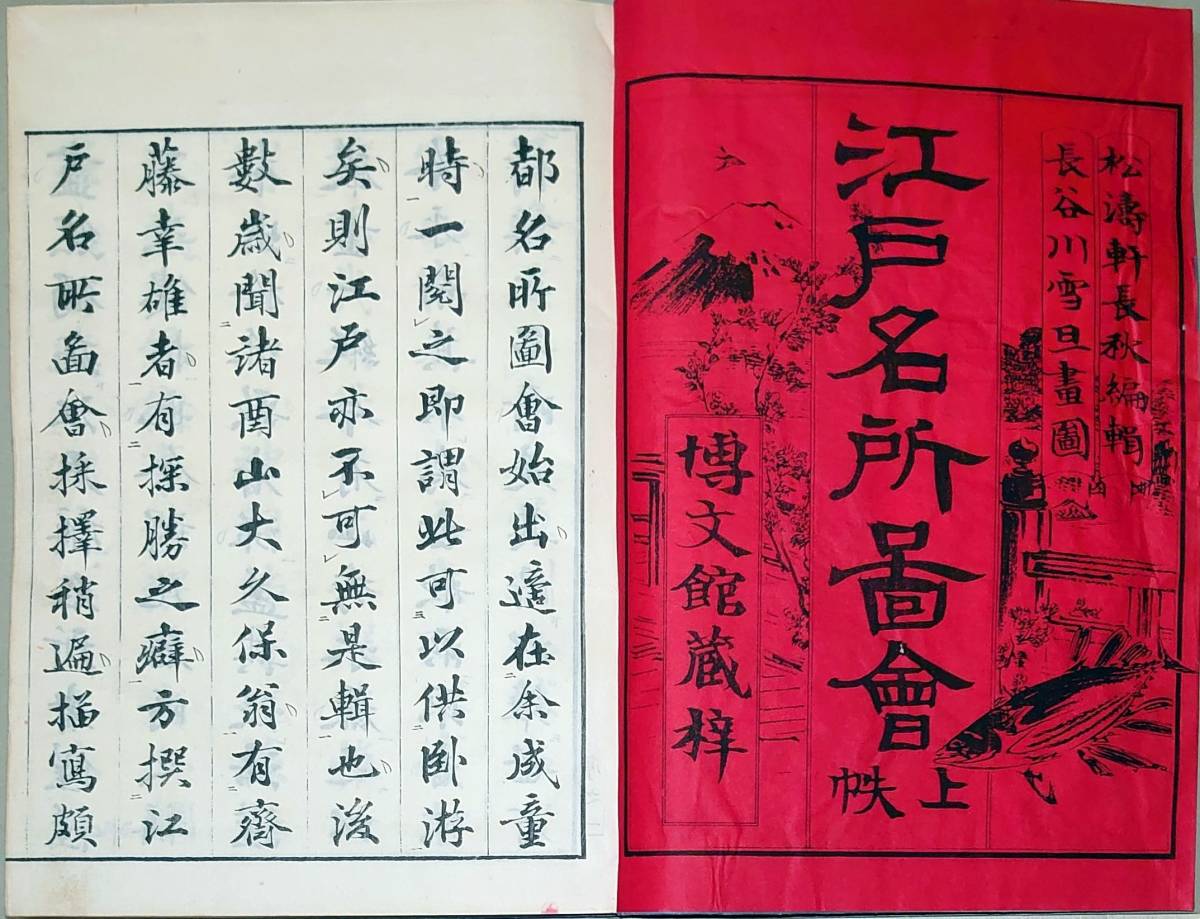 松濤軒長秋編輯
長谷川雪旦畫圖
江戸名所啚會
上帙
博文館蔵梓
都名所圖會始出適在余成童
時一閲之即謂此可以供卧游
矣則江戸亦不可無是輯也後
數歳聞諸酉山大久保翁有齋
藤幸雄者有探勝之癖方撰江
戸名所畐會採擇稍遍描寫頗